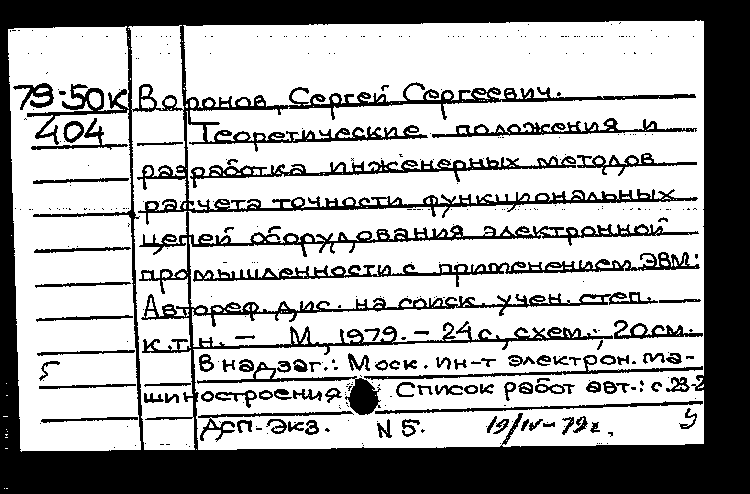 79-50к Воронов, Сергей Сергеевич.
404 Теоретические положения и
разработка инженерных методов
расчета точности функциональных
цепей оборудования электронной
промышленности с применением ЭВМ:
Автореф. дис. на соиск. учен. степ.
к.т.н. – М., 1979. – 24 с., схем.; 20 см.
Б В надзаг.: Моск. ин-т электрон. ма-
шиностроения Список работ авт.: с. 23-2
Дсп-Экз. N 5. 19/IV-79г. У